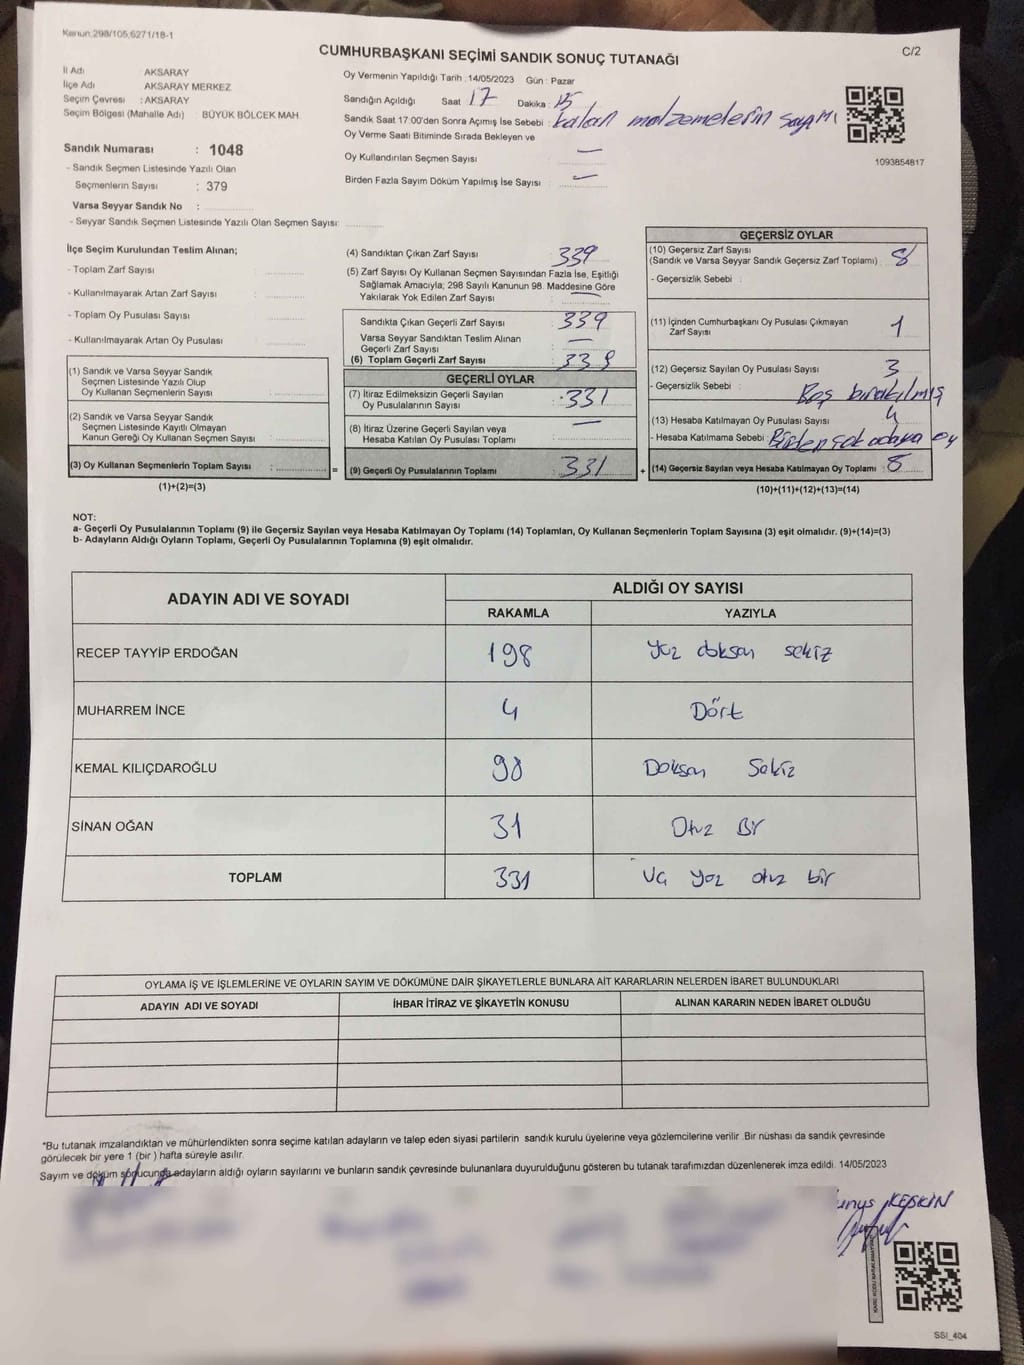 Kanun.298/105,6271/18-1
C/2
CUMHURBAŞKANI SEÇİMİ SANDIK SONUÇ TUTANAĞI
İl Adı AKSARAY
İlçe Adı AKSARAY MERKEZ
Seçim Çevresi : AKSARAY
Seçim Bölgesi (Mahalle Adı) BÜYÜK BÖLCEK MAH.
Sandık Numarası : 1048
- Sandık Seçmen Listesinde Yazılı Olan
Seçmenlerin Sayısı : 379
Varsa Seyyar Sandık No :
- Seyyar Sandık Seçmen Listesinde Yazılı Olan Seçmen Sayısı:
Oy Vermenin Yapıldığı Tarih : 14/05/2023 Gün : Pazar
Sandığın Açıldığı Saat 17 Dakika : 15
Sandık Saat 17.00'den Sonra Açımış İse Sebebi : kalan malzemelerin sayımı
Oy Verme Saati Bitiminde Sırada Bekleyen ve
Oy Kullandırılan Seçmen Sayısı —
Birden Fazla Sayım Döküm Yapılmış İse Sayısı : —
1093854817
İlçe Seçim Kurulundan Teslim Alınan;
- Toplam Zarf Sayısı :
- Kullanılmayarak Artan Zarf Sayısı :
- Toplam Oy Pusulası Sayısı :
- Kullanılmayarak Artan Oy Pusulası :
(1) Sandık ve Varsa Seyyar Sandık
Seçmen Listesinde Yazılı Olup
Oy Kullanan Seçmenlerin Sayısı :
(2) Sandık ve Varsa Seyyar Sandık
Seçmen Listesinde Kayıtlı Olmayan
Kanun Gereği Oy Kullanan Seçmen Sayısı :
(3) Oy Kullanan Seçmenlerin Toplam Sayısı : =
(1)+(2)=(3)
(4) Sandıktan Çıkan Zarf Sayısı : 339
(5) Zarf Sayısı Oy Kullanan Seçmen Sayısından Fazla İse, Eşitliği
Sağlamak Amacıyla; 298 Sayılı Kanunun 98. Maddesine Göre
Yakılarak Yok Edilen Zarf Sayısı : —
Sandıkta Çıkan Geçerli Zarf Sayısı : 339
Varsa Seyyar Sandıktan Teslim Alınan
Geçerli Zarf Sayısı : —
(6) Toplam Geçerli Zarf Sayısı : 339
GEÇERLİ OYLAR
(7) İtiraz Edilmeksizin Geçerli Sayılan
Oy Pusulalarının Sayısı : 331
(8) İtiraz Üzerine Geçerli Sayılan veya
Hesaba Katılan Oy Pusulaları Toplamı : —
(9) Geçerli Oy Pusulalarının Toplamı : 331 +
GEÇERSİZ OYLAR
(10) Geçersiz Zarf Sayısı
(Sandık ve Varsa Seyyar Sandık Geçersiz Zarf Toplamı) : 8
- Geçersizlik Sebebi :
(11) İçinden Cumhurbaşkanı Oy Pusulası Çıkmayan
Zarf Sayısı : 1
(12) Geçersiz Sayılan Oy Pusulası Sayısı : 3
- Geçersizlik Sebebi : Boş bırakılmış
(13) Hesaba Katılmayan Oy Pusulası Sayısı : 4
- Hesaba Katılmama Sebebi : Birden çok adaya oy
(14) Geçersiz Sayılan veya Hesaba Katılmayan Oy Toplamı : 8
(10)+(11)+(12)+(13)=(14)
NOT:
a- Geçerli Oy Pusulalarının Toplamı (9) ile Geçersiz Sayılan veya Hesaba Katılmayan Oy Toplamı (14) Toplamları, Oy Kullanan Seçmenlerin Toplam Sayısına (3) eşit olmalıdır. (9)+(14)=(3)
b- Adayların Aldığı Oyların Toplamı, Geçerli Oy Pusulalarının Toplamına (9) eşit olmalıdır.
ADAYIN ADI VE SOYADI ALDIĞI OY SAYISI
RAKAMLA YAZIYLA
RECEP TAYYİP ERDOĞAN 198 Yüz doksan sekiz
MUHARREM İNCE 4 Dört
KEMAL KILIÇDAROĞLU 98 Doksan Sekiz
SİNAN OĞAN 31 Otuz Bir
TOPLAM 331 Üç yüz otuz bir
OYLAMA İŞ VE İŞLEMLERİNE VE OYLARIN SAYIM VE DÖKÜMÜNE DAİR ŞİKAYETLERLE BUNLARA AİT KARARLARIN NELERDEN İBARET BULUNDUKLARI
ADAYIN ADI VE SOYADI İHBAR İTİRAZ VE ŞİKAYETİN KONUSU ALINAN KARARIN NEDEN İBARET OLDUĞU
*Bu tutanak imzalandıktan ve mühürlendikten sonra seçime katılan adayların ve talep eden siyasi partilerin sandık kurulu üyelerine veya gözlemcilerine verilir .Bir nüshası da sandık çevresinde
görülecek bir yere 1 (bir ) hafta süreyle asılır.
Sayım ve döküm sonucunda adayların aldığı oyların sayılarını ve bunların sandık çevresinde bulunanlara duyurulduğunu gösteren bu tutanak tarafımızdan düzenlenerek imza edildi. 14/05/2023
unus KESKİN
SSI_404